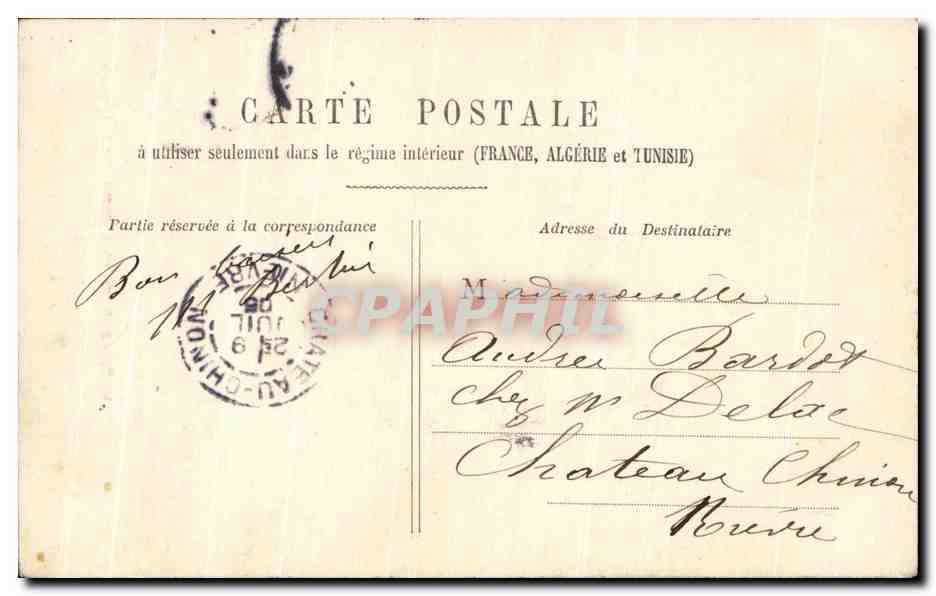 CARTE POSTALE
à utiliser seulement dans le régime intérieur (FRANCE, ALGÉRIE et TUNISIE)
Partie réservée à la correspondance
Bons baisers
M Berthé
CHATEAU-CHINON
NIÈVRE
9
24
JUIL
05
Adresse du Destinataire
Mademoiselle
Andrée Bardot
chez Mr Delac
Chateau Chinon
Nièvre
CPAPHIL